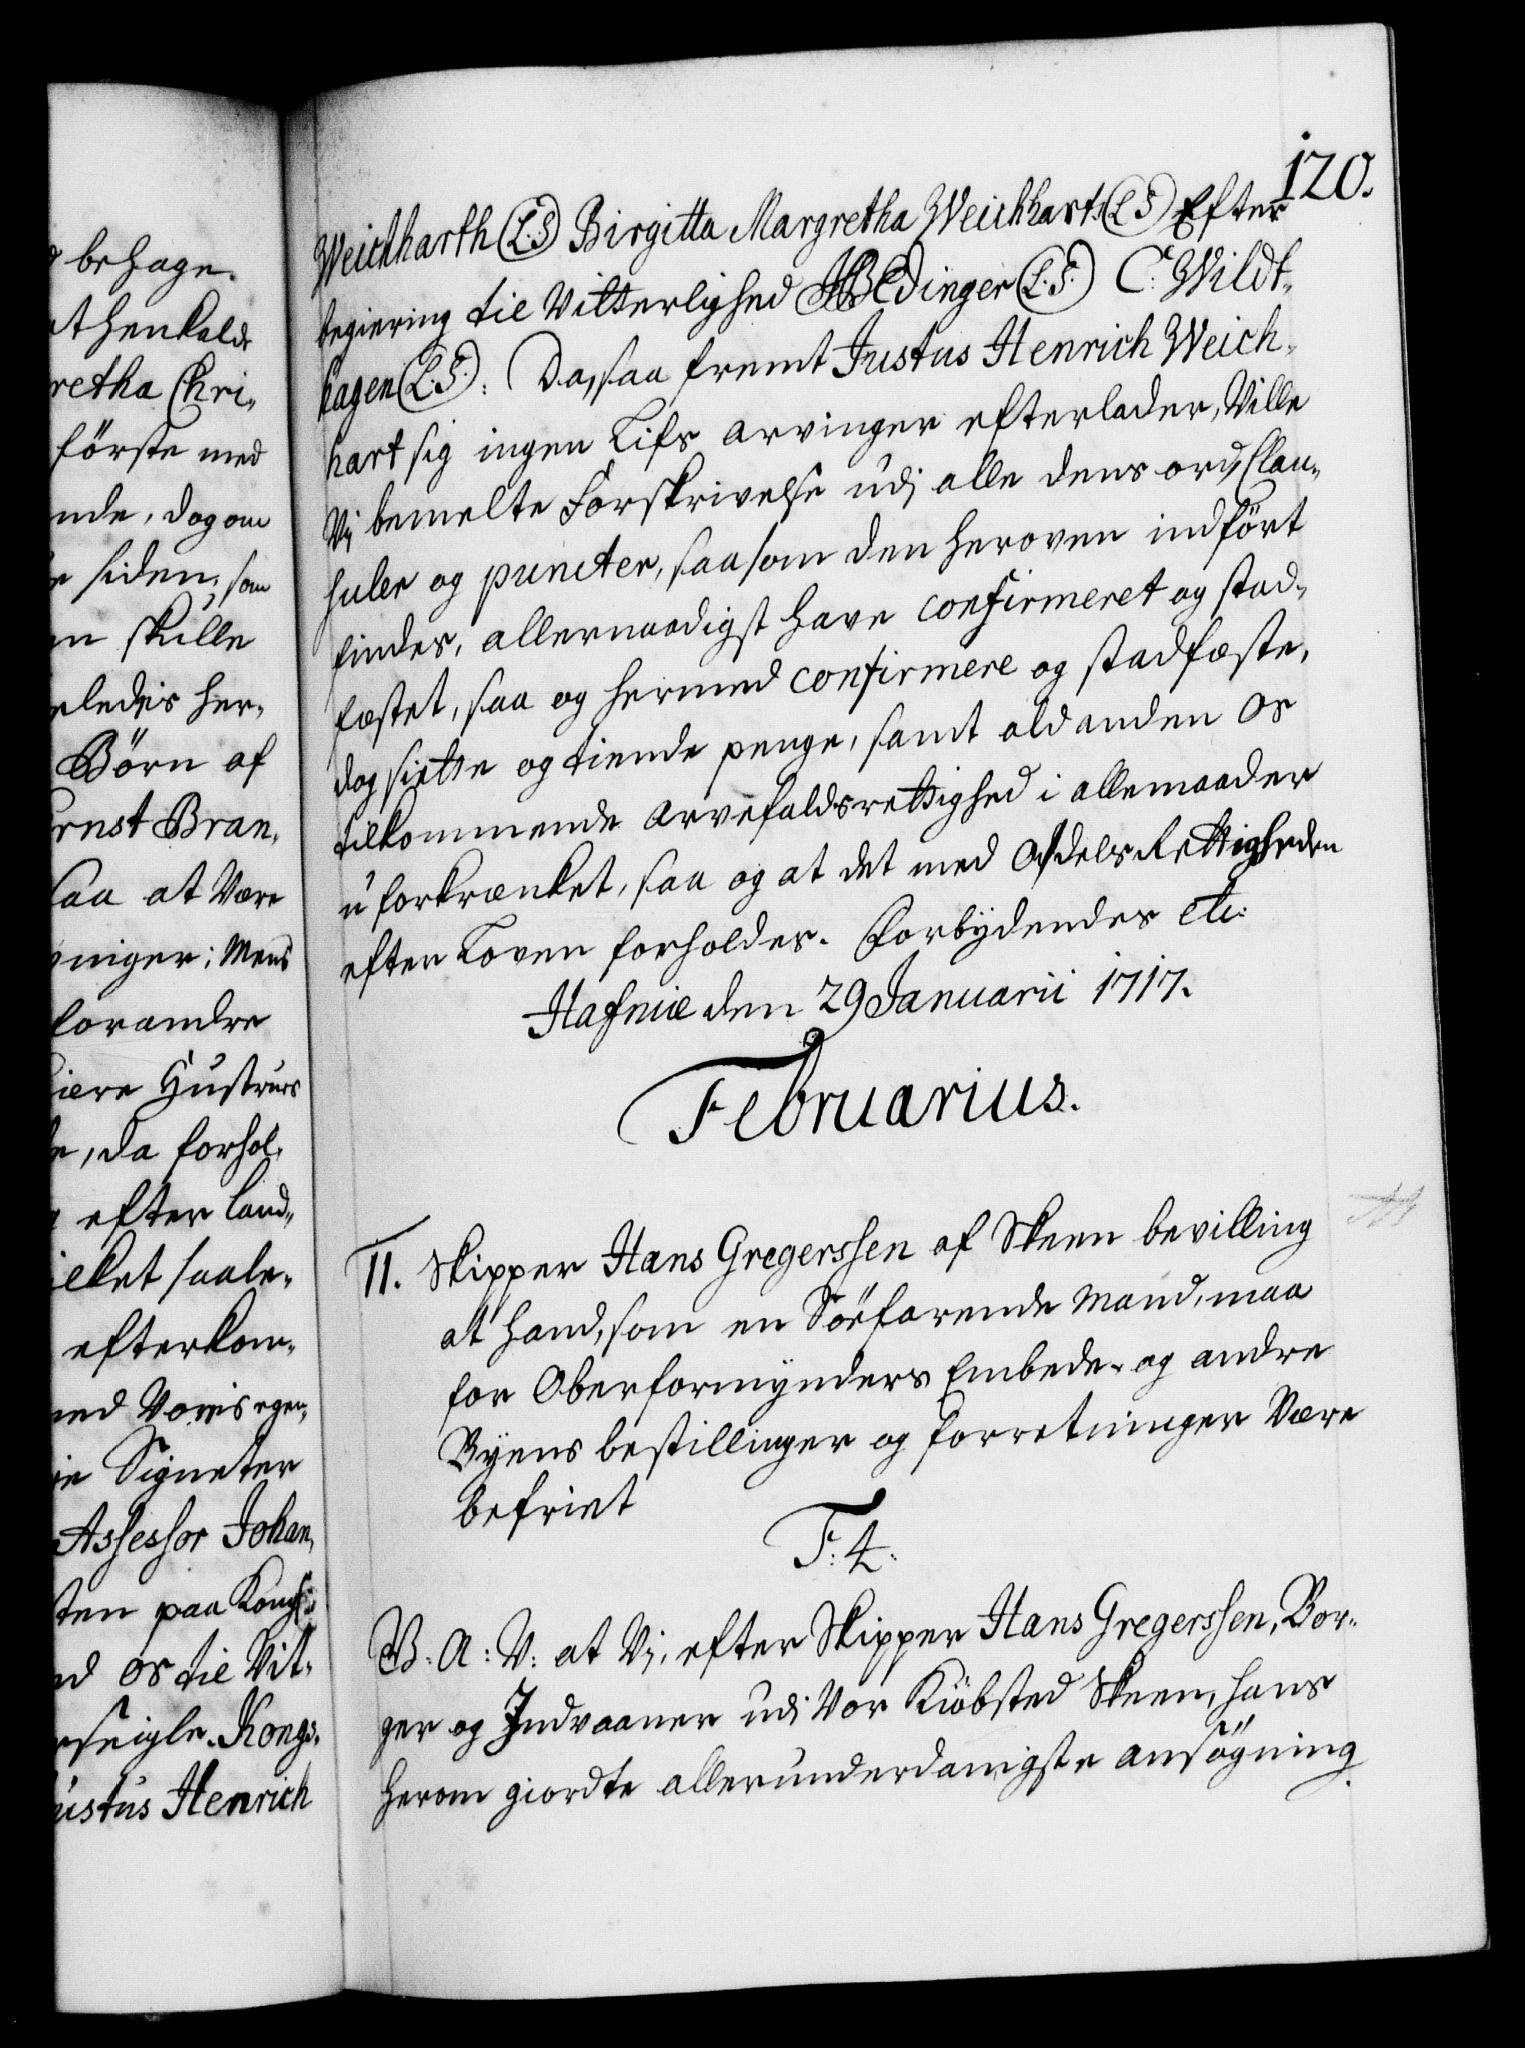 120.
Weichharth (L.S) Birgitta Margretha Weichhart (L S) Efter
begiering til Vitterlighed Bedinger (L.S.) C: Wildt„
hagen (L.S.): Da, saa fremt Justus Henrich Weich„
hart sig ingen Lifs arvinger efterlader, Ville
Vj bemelte Forskrivelse udj alle dens ord, Clau„
suler og puncter, saasom den heroven indført
findes, allernaadigst have confirmeret og stad„
fæstet, saa og hermed confirmere og stadfæste,
dog siette og tiende penge, samt ald anden Os
tilkommende arvefaldsrettighed i allemaader
uforkrænket, saa og at det med Odels Rettigheden
efter Loven forholdes. Forbydendes etc:
Hafniæ den 29 Januarii 1717.
Februarius.
11. Skipper Hans Gregerssen af Skeen bevilling
at hand, som en Söefarende Mand, maa
for Oberformynders Embede og andre
Byens bestillinger og forretninger Være
befriet
F: 4:
V. A: V: at Vj, efter Skipper Hans Gregerssen, Bor„
ger og Indvaaner udi Vor Kiöbsted Skeen, hans
herom giordte allerunderdanigste ansøgning
behage.
at henkalde
retha Chri„
förste med
nde, dog om
siden, som
skulle
eledis her„
Börn af
rnst Bran„
saa at Være
ninger; Mens
forandre
iære Hustrues
, da forhol„
efter Land„
ilket saale„
efterkom„
med Voris egen„
Signeter
Assessor Johan„
ten paa Kongs„
Os til Vit„
rseigle. Kongs„
Justus Henrich